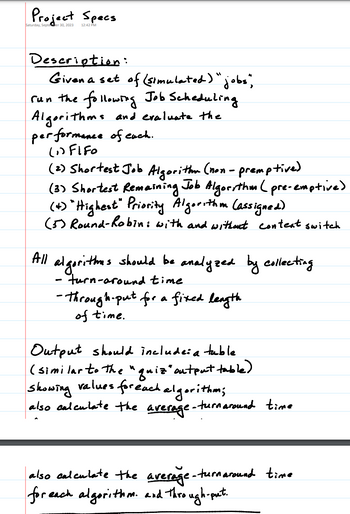 Project Specs
12:41 PM
Description:
Given a set of (simulated) "jobs",
run the following Job Scheduling
Algorithms and evaluate the
performance of each.
(1) FIFO
(2) Shortest Job Algorithm (non-premptive)
(3) Shortest Remaining Job Algorithm (pre-emptive)
(4) "Highest" Priority Algorithm (assigned)
(5) Round-Robin: with and without context switch
All algorithms should be analyzed by collecting
- turn-around time
- through-put for a fixed length
of time.
Output should include: a table
(similar to the "quiz" output table)
showing values for each algorithm;
also calculate the average-turnaround time
also calculate the average-turnaround time
for each algorithm. and through-put.